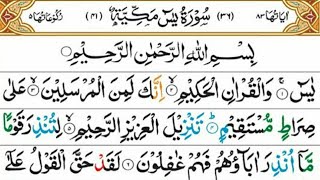 اٰیَاتُهَا ۸۳ (۳۶) سُوْرَةُ یٰسٓ مَكِّیَّةٌ (۴۱) رُكُوْعَاتُهَا ۵
بِسْمِ اللّٰهِ الرَّحْمٰنِ الرَّحِیْمِ
یٰسٓ ۚ وَالْقُرْاٰنِ الْحَكِیْمِ ۙ اِنَّكَ لَمِنَ الْمُرْسَلِیْنَ ۙ عَلٰی
صِرَاطٍ مُّسْتَقِیْمٍ ؕ تَنْزِیْلَ الْعَزِیْزِ الرَّحِیْمِ ۙ لِتُنْذِرَ قَوْمًا
مَّاۤ اُنْذِرَ اٰبَآؤُهُمْ فَهُمْ غٰفِلُوْنَ لَقَدْ حَقَّ الْقَوْلُ عَلٰۤی